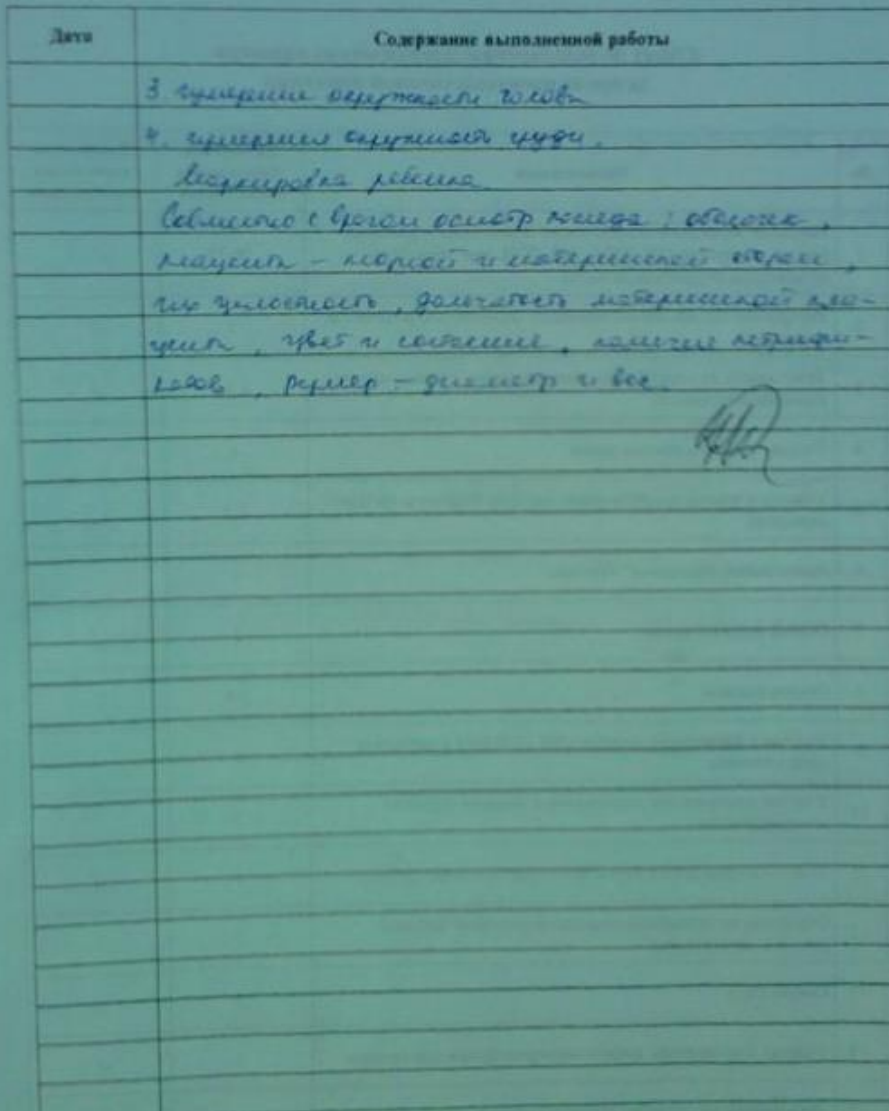 Дата
Содержание выполненной работы
3. измерение окружности головы
4. измерения окружности груди.
Маркировка ребенка.
Совместно с врагом осмотр последа: оболочек,
плаценты - плодной и материнской сторон,
их целостность, дольчатость материнской пла-
центы, цвет и состояние, наличие петрифи-
катов, размер - диаметр и вес.